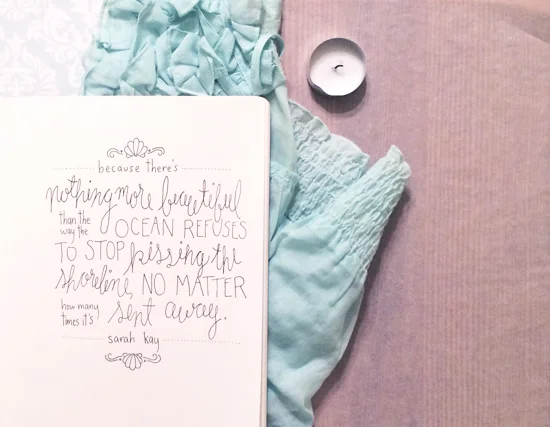 because there's
nothing more beautiful
than the way the OCEAN REFUSES
TO STOP kissing the
shoreline, NO MATTER
how many times it's sent away.
sarah kay